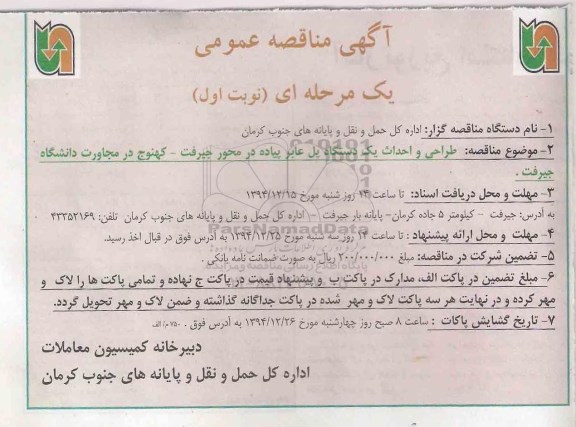 آگهی مناقصه عمومی
یک مرحله ای (نوبت اول)
۱- نام دستگاه مناقصه گزار: اداره کل حمل و نقل و پایانه های جنوب کرمان
۲- موضوع مناقصه: طراحی و احداث یک دستگاه پل عابر پیاده در محور جیرفت - کهنوج در مجاورت دانشگاه
جیرفت .
۳- مهلت و محل دریافت اسناد: تا ساعت ۱۴ روز شنبه مورخ ۱۳۹۴/۱۲/۱۵
به آدرس: جیرفت - کیلومتر ۵ جاده کرمان- پایانه بار جیرفت - اداره کل حمل و نقل و پایانه های جنوب کرمان تلفن: ۴۳۳۵۲۱۶۹
۴- مهلت و محل ارائه پیشنهاد : تا ساعت ۱۴ روز سه شنبه مورخ ۱۳۹۴/۱۲/۲۵ به آدرس فوق در قبال اخذ رسید.
۵- تضمین شرکت در مناقصه: مبلغ ۲۰۰/۰۰۰/۰۰۰ ریال به صورت ضمانت نامه بانکی .
۶- مبلغ تضمین در پاکت الف، مدارک در پاکت ب و پیشنهاد قیمت در پاکت ج نهاده و تمامی پاکت ها را لاک و
مهر کرده و در نهایت هر سه پاکت لاک و مهر شده در پاکت جداگانه گذاشته و ضمن لاک و مهر تحویل گردد.
۷- تاریخ گشایش پاکات : ساعت ۸ صبح روز چهارشنبه مورخ ۱۳۹۴/۱۲/۲۶ به آدرس فوق .
دبیرخانه کمیسیون معاملات
اداره کل حمل و نقل و پایانه های جنوب کرمان
ParsNamadData
پایگاه اطلاع رسانی مناقصه و مزایده